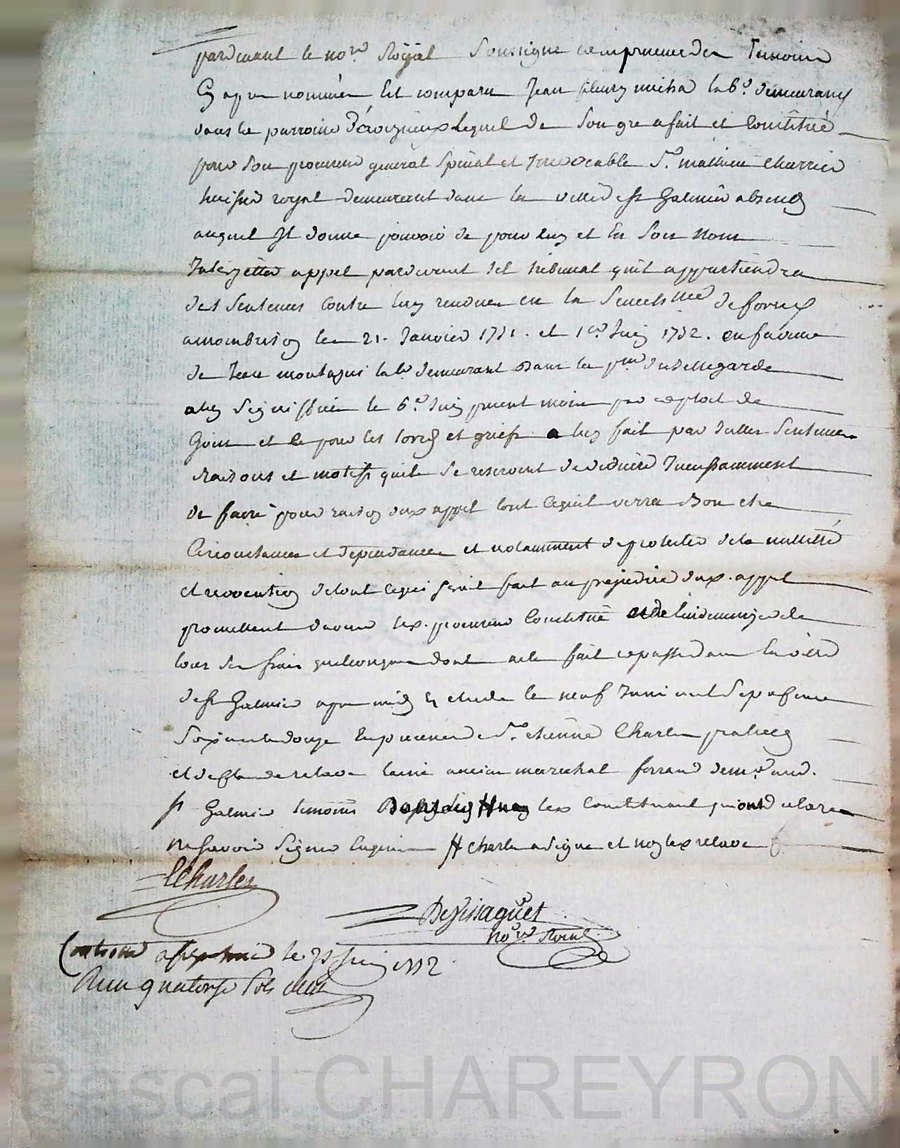 pardevant le nore Royal Soussigné en presence des Temoins
Cy apres nommés Est comparu Jean fleury micha lab.r demeurant
dans la parroisse Lequel de Son gre a fait et Constitué
pour Son procureur general Special et Irrevocable S.r mathieu Charrier
huissier royal demeurant dans la ville de St Galmier absent
auquel Il donne pouvoir de pour luy et En Son Nom
Interjetter appel pardevant tel tribunal quil appartiendra
des Sentences Contre luy rendues en la Senechssée de forest
a montbrison les 21. Janvier 1751. et 1er Juin 1752. en faveur
de Jean montagni lab.r demeurant Dans la psse de Bellegarde
a luy Signiffiées le 6.e Juin present mois par exploit de
et ce pour les torts et griefs a luy fait par Sentences
Raisons et motifs quil Se reservent de deduire Incessamment
de faire pour raison dud. appel tout cequil verra Bon etre
Circonstances et dependances et notamment de protester de la nullitté
et de tout cequi Seroit fait au prejudice dud. appel
promettant davouer led. procureur Constitué et de lindemniser de
tous Ses frais quelconques dont acte fait et passé dans la ville
de St Galmier apres midy Etude le neuf Juin mil Sept cent
Cinquante douze En presence de S.r etienne Charles praticien
et de relave laine ancien marechal ferrand dem.t aud.
St Galmier temoins led. Constituant qui ont declaré
ne Scavoir Signer Charles a Signé et non led. relave
Charles
Desvisaguet
no.re Roial
Controllé a St Galmier le Juin 1752.
Reçu quatorze Sols
Pascal CHAREYRON